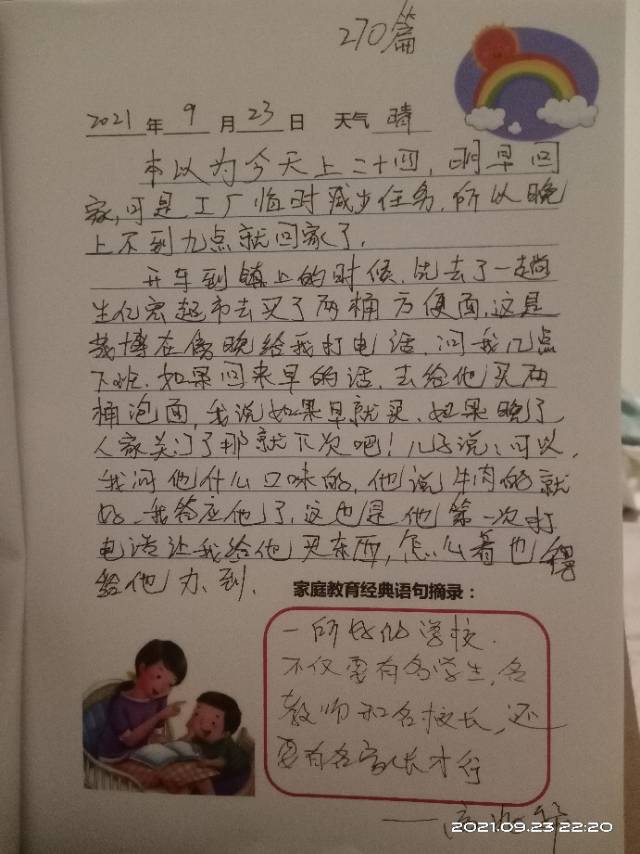 270篇
2021年9月23日 天气 晴
本以为今天上二十四,明早回
家,可是工厂临时减少任务,所以晚
上不到九点就回家了,
开车到镇上的时候,先去了一趟
生亿宏超市去买了两桶方便面,这是
博在傍晚给我打电话,问我几点
下班,如果回来早的话,去给他买两
桶泡面,我说如果早就买,如果晚了
人家关门了那就下次吧!儿子说:可以,
我问他什么口味的,他说牛肉的就
好,我答应他了,这也是他第一次打
电话让我给他买东西,怎么着也得
给他办到.
家庭教育经典语句摘录:
一所好的学校.
不仅要有名学生,名
教师和名校长,还
要有名家长才行
2021.09.23 22:20